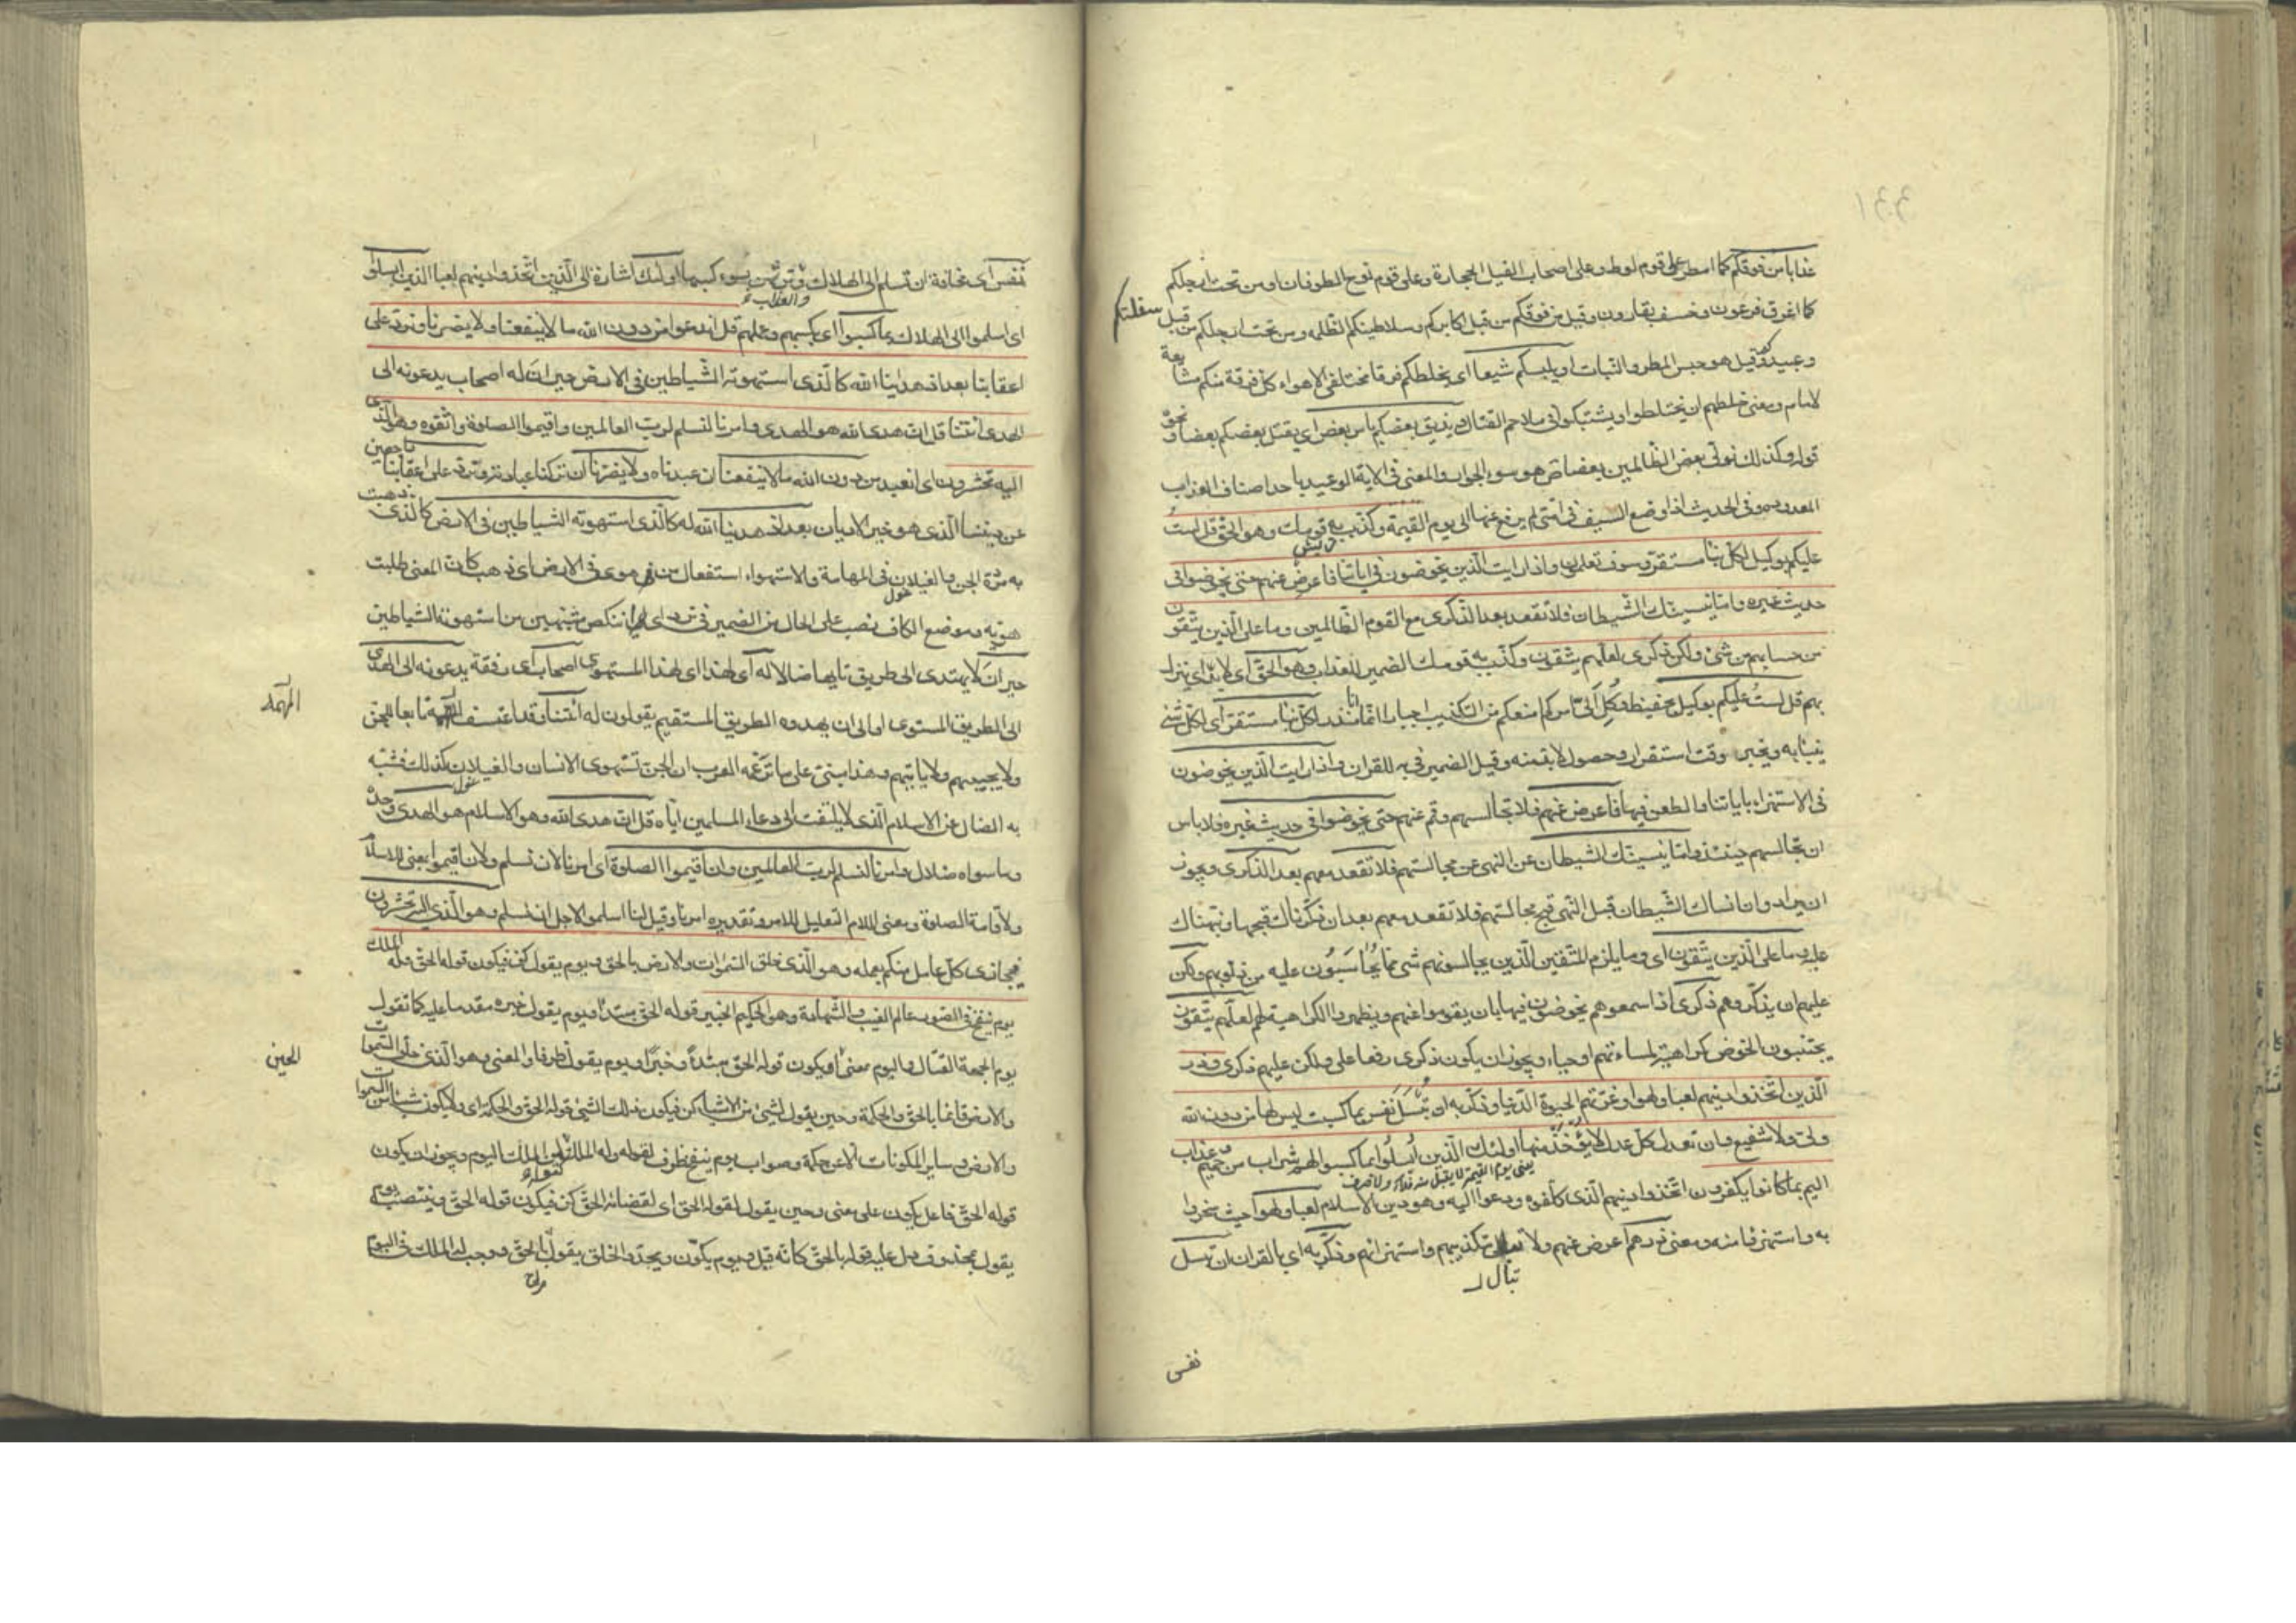 عذابا من فوقكم كما امطر على قوم لوط وعلى اصحاب الفيل الحجارة وعلى قوم نوح الطوفان او من تحت ارجلكم
كما اغرق فرعون وخسف بقارون وقيل من فوقكم من قبل اكابركم وسلاطينكم الظلمة ومن تحت ارجلكم من قبل سفلتكم
وعبيدكم وقيل هو حبس المطر والنبات او يلبسكم شيعا اى يخلطكم فرقا مختلفى الاهواء كل فرقة منكم مشايعة
لامام ومعنى خلطهم ان يختلطوا ويشتبكوا فى ملاحم القتال ويذيق بعضكم باس بعض اى يقتل بعضكم بعضا ونحوه
قوله وكذلك نولى بعض الظالمين بعضا هو سوء الجوار والمعنى فى الاية الوعيد باحد اصناف العذاب
المعدودة وفى الحديث اذا وضع السيف فى امتى لم يرفع عنها الى يوم القيمة وكذب به قومك وهو الحق قل لست
قريش
عليكم بوكيل لكل نبا مستقر وسوف تعلمون واذا رايت الذين يخوضون فى اياتنا فاعرض عنهم حتى يخوضوا فى
حديث غيره واما ينسينك الشيطان فلا تقعد بعد الذكرى مع القوم الظالمين وما على الذين يتقون
من حسابهم من شئ ولكن ذكرى لعلهم يتقون وكذب به قومك الضمير للعذاب وهو الحق اى لا بد ان ينزل
بهم قل لست عليكم بوكيل بحفيظ وكل الى امركم امنعكم من التكذيب اجبارا انما انا منذر لكل نبا مستقر اى لكل شئ
ينبا به ويخبر وقت استقرار وحصول لا بد منه وقيل الضمير فى به للقران واذا رايت الذين يخوضون
فى الاستهزاء باياتنا والطعن فيها فاعرض عنهم فلا تجالسهم وقم عنهم حتى يخوضوا فى حديث غيره فلا باس
ان تجالسهم حينئذ واما ينسينك الشيطان عن النهى عن مجالستهم فلا تقعد معهم بعد الذكرى ويجوز
ان يراد وان انساك الشيطان قبل النهى قبح مجالستهم فلا تقعد معهم بعد ان ذكرناك قبحها ونبهناك
عليه وما على الذين يتقون اى وما يلزم المتقين الذين يجالسونهم شئ مما يحاسبون عليه من ذنوبهم ولكن
عليهم ان يذكروهم ذكرى اذا سمعوهم يخوضون فيها بان يقوموا عنهم ويظهروا الكراهية لهم لعلهم يتقون
يجتنبون الخوض كراهية لمساءتهم او حياء ويجوز ان يكون ذكرى رفعا على ولكن عليهم ذكرى وذر
الذين اتخذوا دينهم لعبا ولهوا وغرتهم الحيوة الدنيا وذكر به ان تبسل نفس بما كسبت ليس لها من دون الله
ولى ولا شفيع وان تعدل كل عدل لا يؤخذ منها اولئك الذين ابسلوا بما كسبوا لهم شراب من حميم وعذاب
يعنى يوم القيمة لا يقبل منه فداء ولا صرف
اليم بما كانوا يكفرون اتخذوا دينهم الذى كلفوه ودعوا اليه وهو دين الاسلام لعبا ولهوا حيث سخروا
به واستهزئوا منه ومعنى ذرهم اعرض عنهم ولا تبال بتكذيبهم واستهزائهم وذكر به اى بالقران ان تبسل
تبال
نفس
نفس اى مخافة ان تسلم الى الهلاك وترتهن بسوء كسبها اولئك اشارة الى الذين اتخذوا دينهم لعبا الذين ابسلوا
والعذاب
اى اسلموا الى الهلاك بما كسبوا اى بكسبهم وعملهم قل اندعوا من دون الله ما لا ينفعنا ولا يضرنا ونرد على
اعقابنا بعد اذ هدينا الله كالذى استهوته الشياطين فى الارض حيران له اصحاب يدعونه الى
الهدى ائتنا قل ان هدى الله هو الهدى وامرنا لنسلم لرب العالمين واقيموا الصلوة واتقوه وهو الذى
اليه تحشرون اى انعبد من دون الله ما لا ينفعنا ان عبدناه ولا يضرنا ان تركنا عبادته ونرد على اعقابنا راجعين
عن ديننا الذى هو خير الاديان بعد اذ هدينا الله له كالذى استهوته الشياطين فى الارض كالذى ذهبت
به مردة الجن والغيلان فى المهامة والاستهواء استفعال من هوى فى الارض اى ذهب كان المعنى طلبت
هويه وموضع الكاف نصب على الحال من الضمير فى نرد اى اننكص مشبهين من استهوته الشياطين
حيران لا يهتدى الى طريق تايها ضالا له اى لهذا المستهوى اصحاب اى رفقة يدعونه الى الهدى
الى الطريق المستوى او الى ان يهدوه الطريق المستقيم يقولون له ائتنا وقد اعتسف المهمه تابعا للجن
المهمه
ولا يجيبهم ولا ياتيهم وهذا مبنى على ما تزعمه العرب ان الجن تستهوى الانسان والغيلان كذلك فشبه
به الضال عن الاسلام الذى لا يلتفت الى دعاء المسلمين اياه قل ان هدى الله وهو الاسلام هو الهدى وحده
وما سواه ضلال وامرنا لنسلم لرب العالمين وان اقيموا الصلوة اى امرنا لان نسلم ولان اقيموا يعنى للاسلام
ولاقامة الصلوة ومعنى اللام التعليل للامر وتقديره امرنا وقيل لنا اسلموا لاجل ان نسلم وهو الذى اليه تحشرون
فيجازى كل عامل منكم بعمله وهو الذى خلق السموات والارض بالحق ويوم يقول كن فيكون قوله الحق وله الملك
يوم ينفخ فى الصور عالم الغيب والشهادة وهو الحكيم الخبير قوله الحق مبتدا ويوم يقول خبره مقدما عليه كما تقول
يوم الجمعة القتال واليوم بمعنى الحين او يكون قوله الحق مبتدأ وخبرا ويوم يقول ظرفا والمعنى وهو الذى خلق السموات
الحين
والارض قائما بالحق والحكمة وحين يقول لشئ من الاشياء كن فيكون ذلك الشئ قوله الحق والحكمة اى ولا يكون شيئا من السموات
والارض وساير المكونات الا عن حكمة وصواب يوم ينفخ ظرف لقوله وله الملك كقوله لمن الملك اليوم ويجوز ان يكون
قوله الحق فاعل يكون على معنى وحين يقول لقوله الحق اى لقضائه الحق كن فيكون قوله الحق وينتصب يوم
يقول بمحذوف دل عليه قوله بالحق كانه قيل ويوم يكون ويجدد الخلق يقول بالحق وجب له الملك فى اليوم